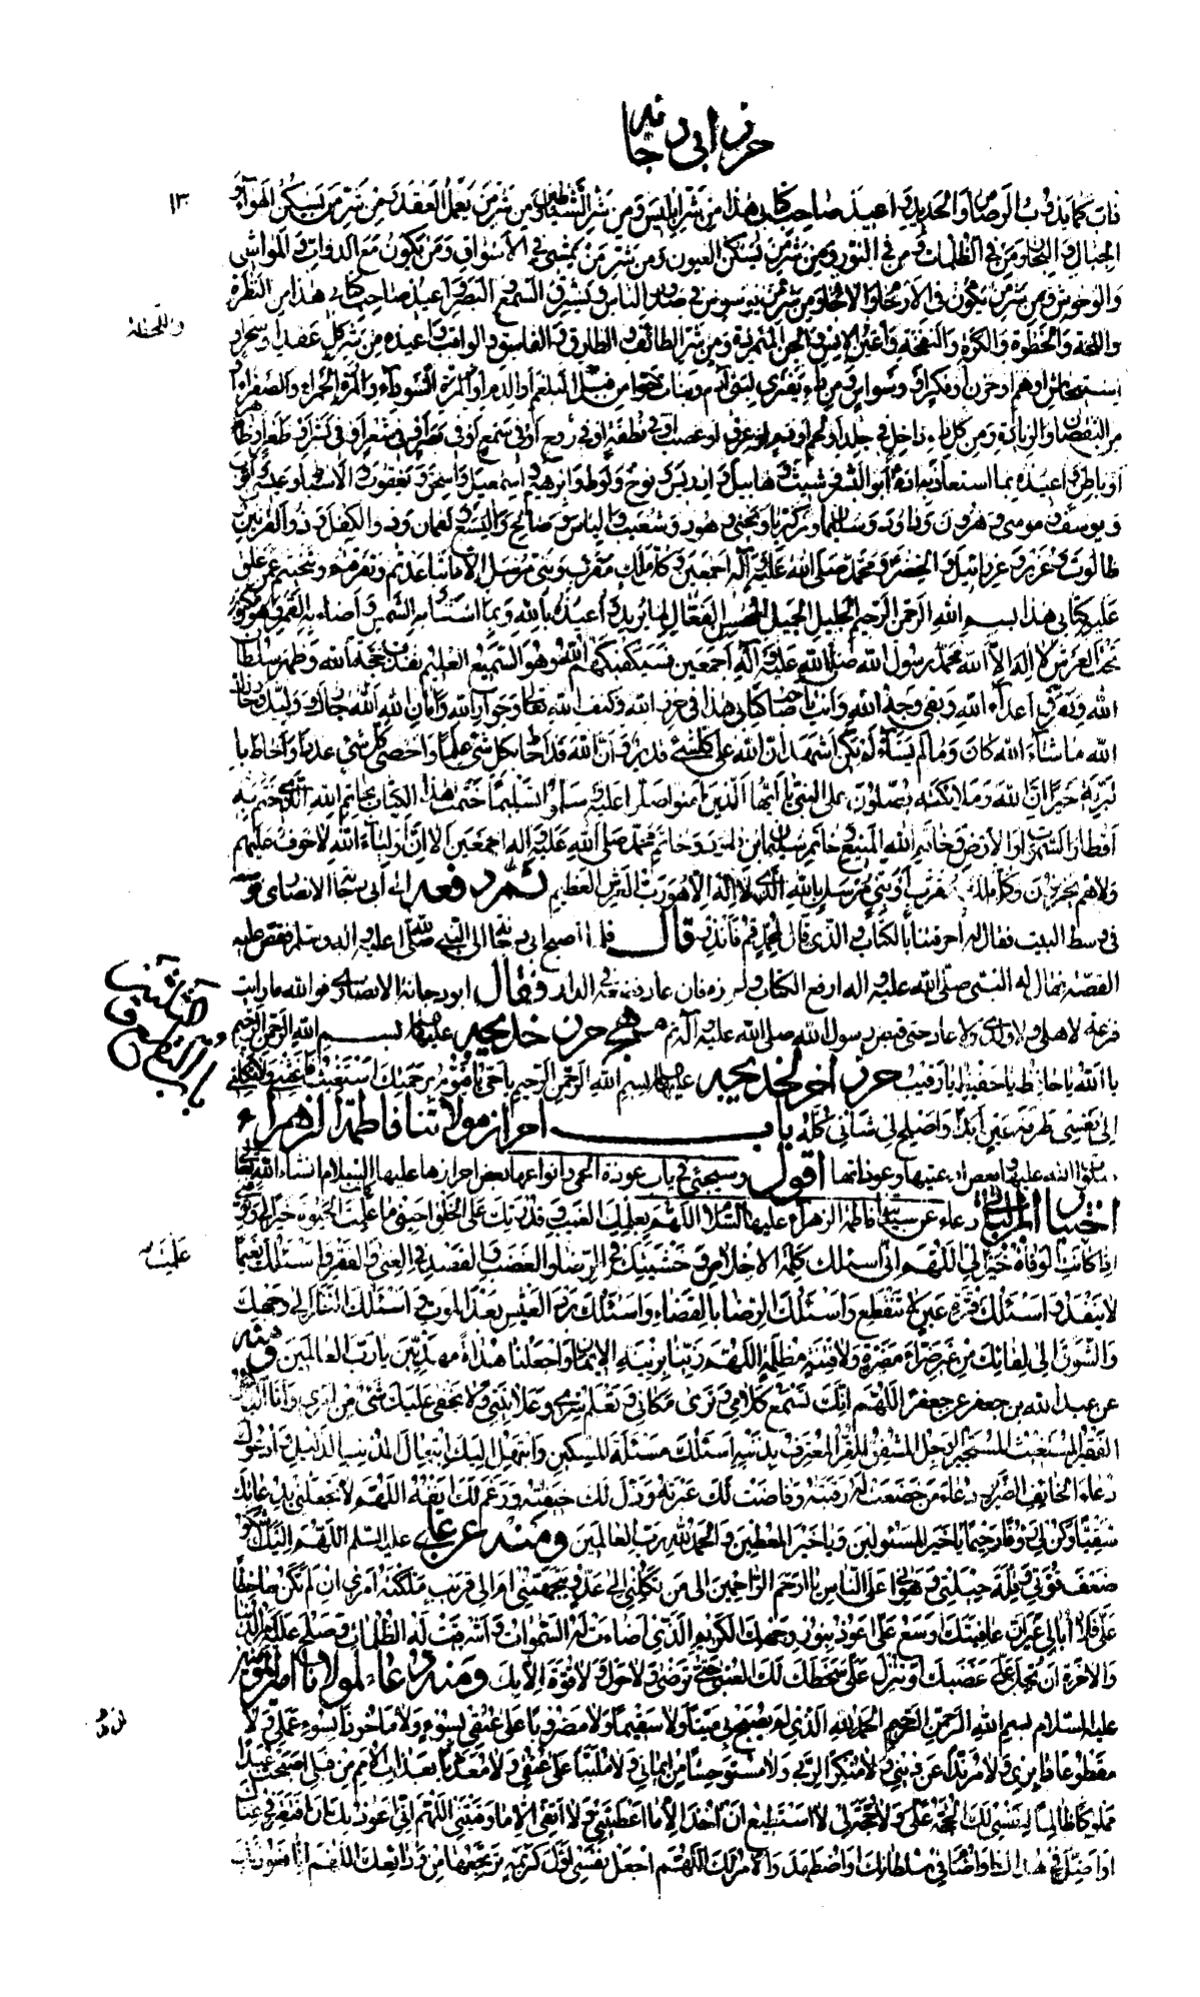 حرز ابی دجانه
١٣
ذاب كما يذوب الرصاص والحديد واعيذ صاحب كتابى هذا من شر ابليس ومن شر الشياطين ومن شر من يعمل العقد ومن شر من يسكن الهواء و
الجبال والبحار ومن فى الظلمات ومن فى النور ومن شر من يسكن العيون ومن شر من يمشى فى الاسواق ومن يكون مع الدواب والمواشى
والوحوش ومن شر من يكون فى الارحام والاجام ومن شر من يوسوس فى صدور الناس ويسترق السمع والبصر واعيذ صاحب كتابى هذا من النظرة
واللحظة
واللمحة والخطوة والكرة والنفخة واعين الانس والجن المتمردة ومن شر الطائف والطارق والغاسق والواقب واعيذه من شر كل عقد او سحر او
استيحاش او هم او حزن او فكر او وسواس ومن داء يفترى لبنى آدم وبنات حوا من قبل البلغم او الدم او المرة السوداء والمرة الحمراء والصفراء او
من النقصان والزيادة ومن كل داء داخل فى جلد او لحم او دم او عرق او عصب او فى نطفة او فى روح او فى سمع او فى بصر او فى شعر او فى بشر او ظفر او ظاهر
او باطن واعيذه بما استعاذ به ادم ابو البشر وشيث وهابيل وادريس ونوح ولوط وابرهيم واسمعيل واسحق ويعقوب والاسباط وعيسى وايوب
ويوسف وموسى وهرون وداود وسليمان وزكريا ويحيى وهود وشعيب والياس وصالح واليسع ولقمان وذو الكفل وذو القرنين
طالوت وعزير وعزرائيل والخضر ومحمد صلى الله عليه وآله اجمعين وكل ملك مقرب ونبى مرسل الا ما تباعدتم وتفرقتم وتنحيتم عن من علق
عليه كتابى هذا بسم الله الرحمن الرحيم الجليل الجميل المحسن الفعال لما يريد واعيذه بالله وبما استنار به الشمس واضاء به القمر وهو مكتوب
تحت العرش لا اله الا الله محمد رسول الله صلى الله عليه وآله اجمعين فسيكفيكهم الله وهو السميع العليم نفذت حجة الله وظهر سلطان
الله وتفرق اعداء الله وبقى وجه الله وانت يا صاحب كتابى هذا فى حرز الله وكنف الله تعالى وجوار الله وامان الله الله جارك ووليك وحاذرك
الله ما شاء الله كان وما لم يشاء لم يكن اشهد ان الله على كل شىء قدير وان الله قد احاط بكل شىء علما واحصى كل شىء عددا واحاط با
لبرية خبرا ان الله وملائكته يصلون على النبى يا ايها الذين امنوا صلوا عليه وسلموا تسليما ختمت هذا الكتاب بخاتم الله الذى ختم به
اقطار السموات والارض وخاتم الله المنيع وخاتم سليمان بن داود وخاتم محمد صلى الله عليه وآله اجمعين الا ان اولياء الله لا خوف عليهم
ولا هم يحزنون وكل ملك مقرب او نبى مرسل بالله الذى لا اله الا هو رب العرش العظيم ثم دفعه الى ابى دجانة الانصارى فوضعه
فى وسط البيت فقال له احرقتنا بالكتاب والذى قال لمحمد قم فانذر قال فلما اصبح ابى دجانة الى النبى صلى الله عليه وآله وسلم فقص عليه
القصة فقال له النبى صلى الله عليه وآله ارفع الكتاب فان عاد فضعه فى الدار فقال ابو دجانة الانصارى فو الله ما رايت
فزعة لاهلى ولا ولدى ولا عاد حتى قبض رسول الله صلى الله عليه وآله مهج حرز خديجه عليها السلام بسم الله الرحمن الرحيم
يا الله يا حافظ يا حفيظ يا رقيب حرز اخر لخديجه عليها السلم بسم الله الرحمن الرحيم يا حى يا قيوم برحمتك استغيث فاغثنى ولا تكلنى
الى نفسى طرفة عين ابدا واصلح لى شانى كله باب احراز مولاتنا فاطمة الزهراء
صلوات الله عليها وبعض ادعيتها وعوذاتها اقول وسيجئ فى باب عوذة الحمى وانواعها بعض احرازها عليها السلام انشاء الله تعالى
اختيار دعاء عن سيدتنا فاطمة الزهراء عليها السلام اللهم بعلمك الغيب وقدرتك على الخلق احينى ما علمت الحيوة خيرا لى وتوفنى
علميت
اذا كانت الوفاة خيرا لى اللهم انى اسئلك كلمة الاخلاص وخشيتك فى الرضا والغضب والقصد فى الغنى والفقر واسئلك نعيما
لا ينفد واسئلك قرة عين لا تنقطع واسئلك الرضا بالقضاء واسئلك برد العيش بعد الموت واسئلك النظر الى وجهك
والشوق الى لقائك من غير ضراء مضرة ولا فتنة مظلمة اللهم زينا بزينة الايمان واجعلنا هداة مهديين يا رب العالمين ومنه
عن عبد الله بن جعفر عن جعفر اللهم انك تسمع كلامى وترى مكانى وتعلم سرى وعلانيتى ولا يخفى عليك شئ من امرى وانا البائس
الفقير المستغيث المستجير الوجل المشفق المقر المعترف بذنبه اسئلك مسئلة المسكين وابتهل اليك ابتهال المذنب الذليل وادعوك
دعاء الخائف الضرير دعاء من خضعت لك رقبته وفاضت لك عبرته وذل لك خيفته ورغم لك انفه اللهم لا تجعلنى بدعائك
شقيا وكن لى رؤفا رحيما يا خير المسئولين ويا خير المعطين والحمد لله رب العالمين ومنه عن على عليه السلم اللهم اليك اشكو
ضعف قوتى وقلة حيلتى وهوانى على الناس يا ارحم الراحمين الى من تكلنى الى عدو يتجهمنى ام الى قريب ملكته امرى ان لم تكن ساخطا
على فلا ابالى غير ان عافيتك اوسع على اعوذ بنور وجهك الكريم الذى اضاءت له السموات واشرقت له الظلمات وصلح عليه امر الدنيا
والاخرة ان تحل على غضبك او تنزل على سخطك لك العتبى حتى ترضى ولا حول ولا قوة الا بك ومنه دعاء لمولانا امير المؤمنين
عليه السلام بسم الله الرحمن الرحيم الحمد لله الذى لم يصبح بى ميتا ولا سقيما ولا مضروبا على عنقى بسوء ولا ماخوذا بسوء عملى ولا
مقطوعا دابرى ولا مرتدا عن دينى ولا منكرا لربى ولا مستوحشا من ايمانى ولا ملتبا على عنقى ولا معذبا بعذاب الامم من قبلى اصبحت عبدا
مملوكا ظالما لنفسى لك الحجة على ولا حجة لى لا استطيع ان آخذ الا ما اعطيتنى ولا اتقى الا ما وقيتنى اللهم انى اعوذ بك ان افتقر فى غناك
او اضل فى هداك او اضام فى سلطانك او اضطهد والامر لك اللهم اجعل نفسى اول كريمة ترتجعها من ودائعك اللهم انا نعوذ بك